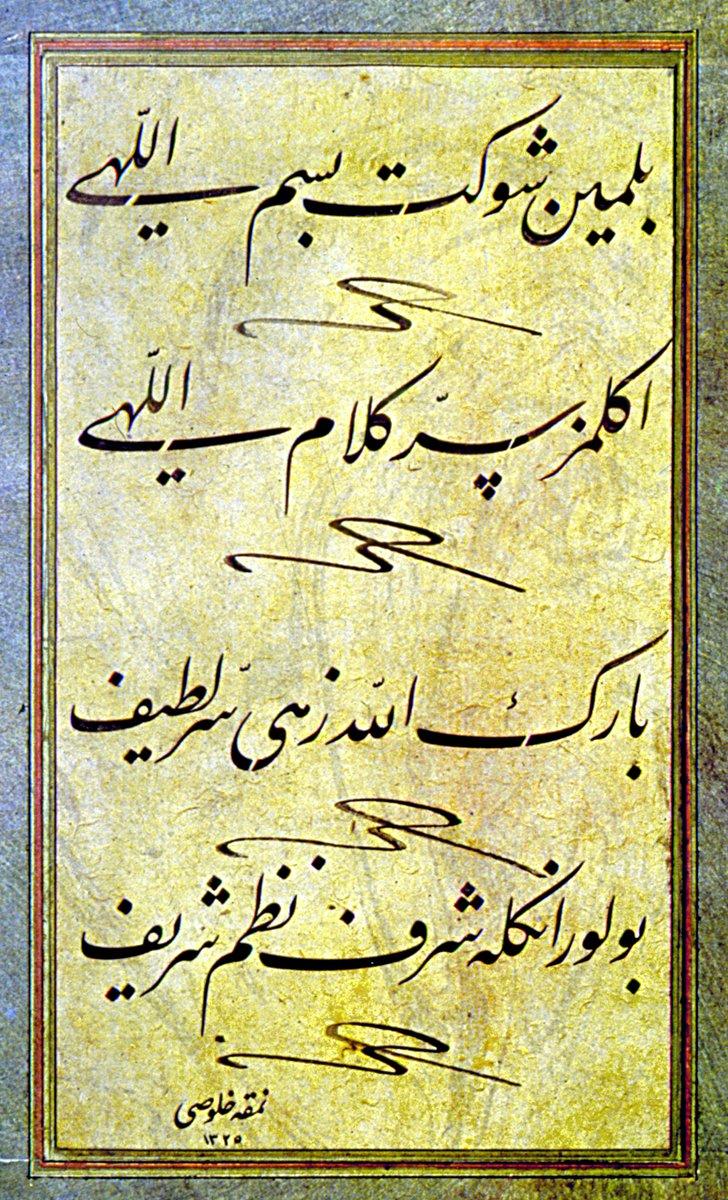 بلمین شوکت بسم اللهی
اکلمز پرّ کلام اللهی
بارک الله زهی سرّ لطیف
بولور انکله شرف نظم شریف
نمقه خلوصی
١٣٢٥